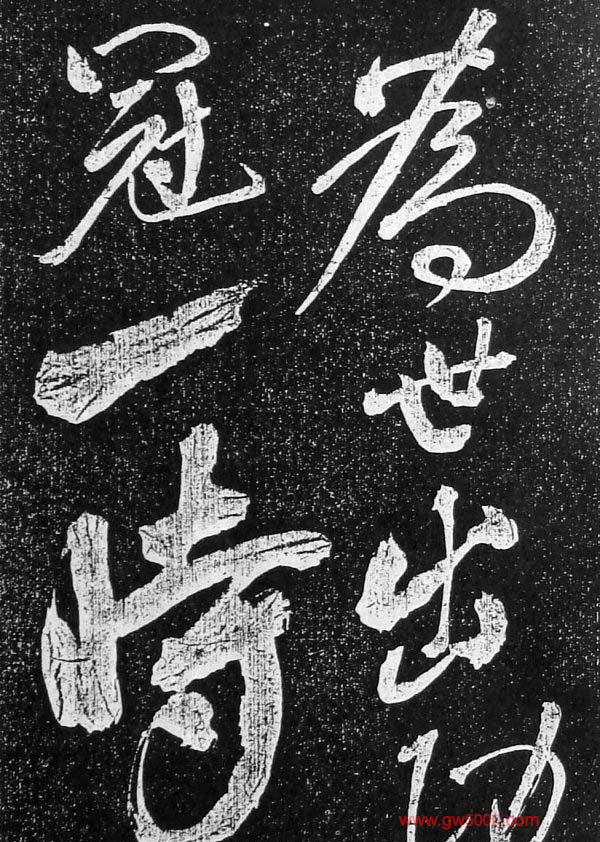 為世出功
冠一時
www.gw5000.com